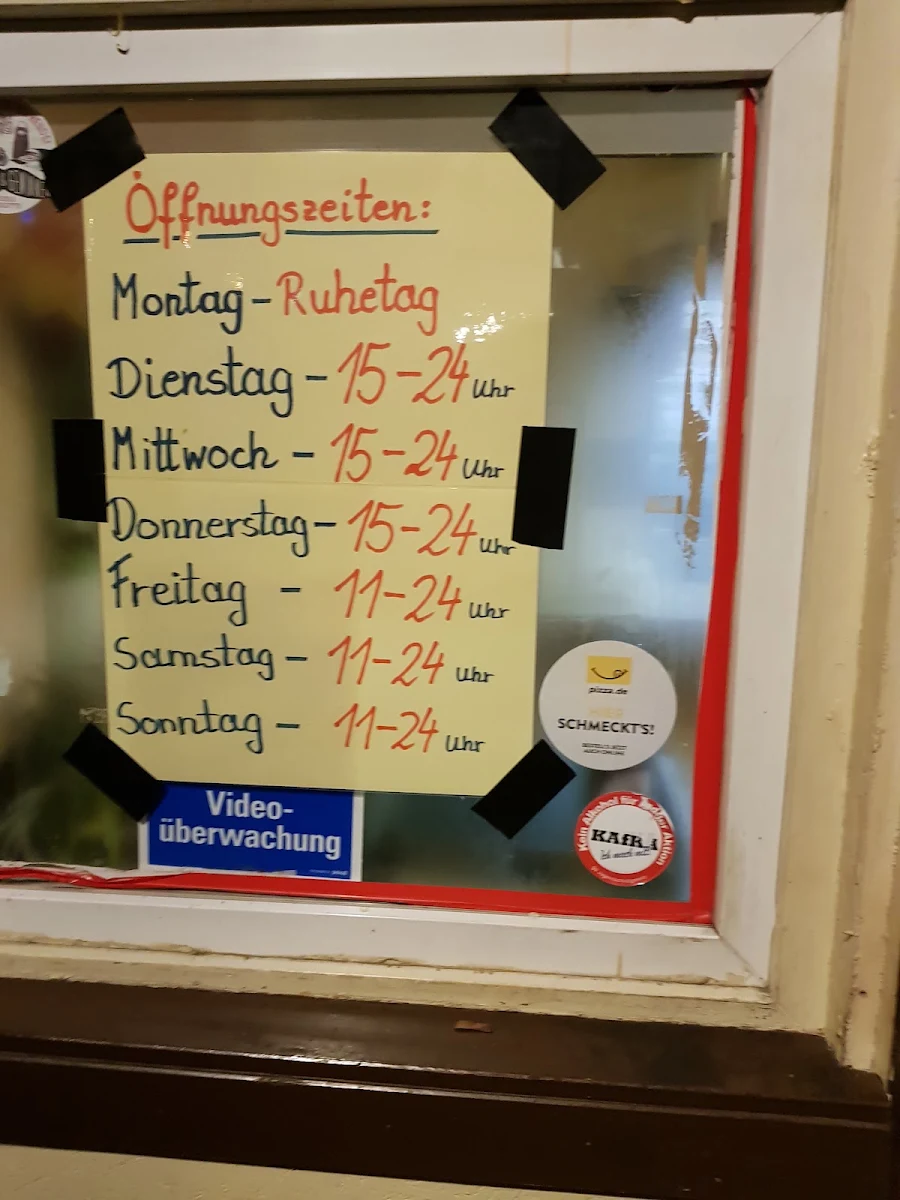 Öffnungszeiten:
Montag - Ruhetag
Dienstag - 15-24 Uhr
Mittwoch - 15-24 Uhr
Donnerstag - 15-24 Uhr
Freitag - 11-24 Uhr
Samstag - 11-24 Uhr
Sonntag - 11-24 Uhr
pizza.de
HIER
SCHMECKT'S!
BESTELL'S JETZT
AUCH ONLINE
Video-
überwachung
Kein Alkohol für
Aktion